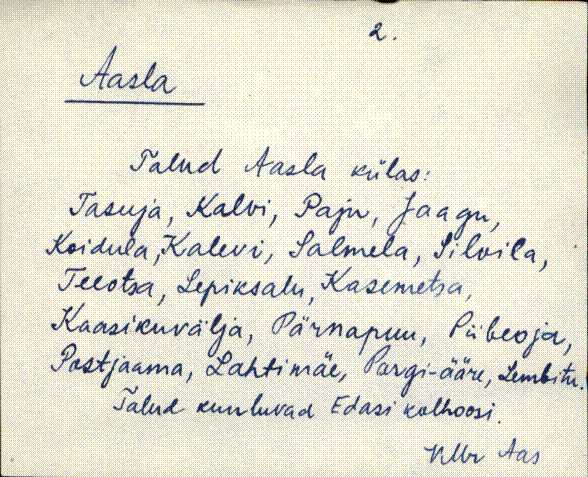 2.
Aasla
Talud Aasla külas:
Tasuja, Kalvi, Paju, Jaagu,
Koidula, Kalevi, Salmela, Silvila,
Teeotsa, Lepiksalu, Kasemetsa,
Kaasikuvälja, Pärnapuu, Piibeoja,
Postjaama, Lahtimäe, Pargi-ääre, Lembitu.
Talud kuuluvad Edasi kolhoosi.
Aas